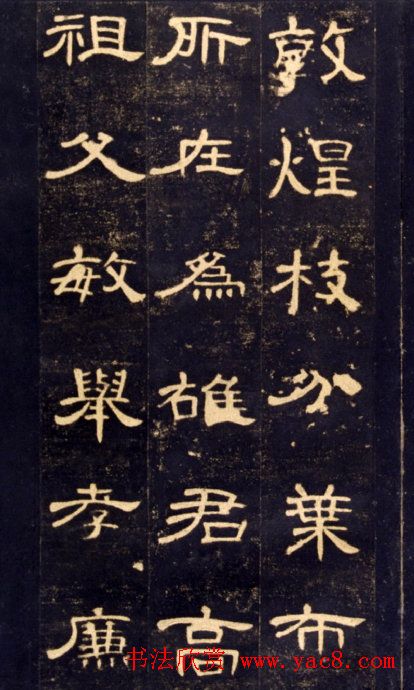 敦煌枝分葉布
所在為雄君高
祖父敏舉孝廉
书法欣赏 www.yac8.com